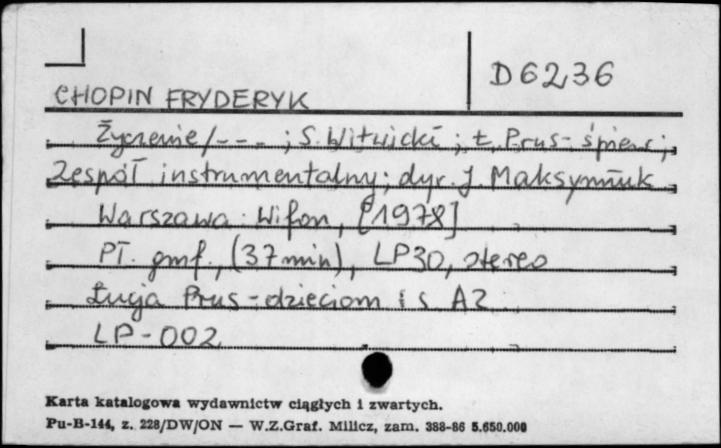 D6236
CHOPIN FRYDERYK
Życzenie/--- ; S. Witwicki ; Ł. Prus - śpiew ;
Zespół instrumentalny ; dyr. J. Maksymiuk
Warszawa : Wifon, [1978]
Pł. gmf., (37 min), LP30, stereo
Łucja Prus - dzieciom i s A2
LP-002
Karta katalogowa wydawnictw ciągłych i zwartych.
Pu-B-144, z. 228/DW/ON — W.Z.Graf. Milicz, zam. 388-86 5.650.000